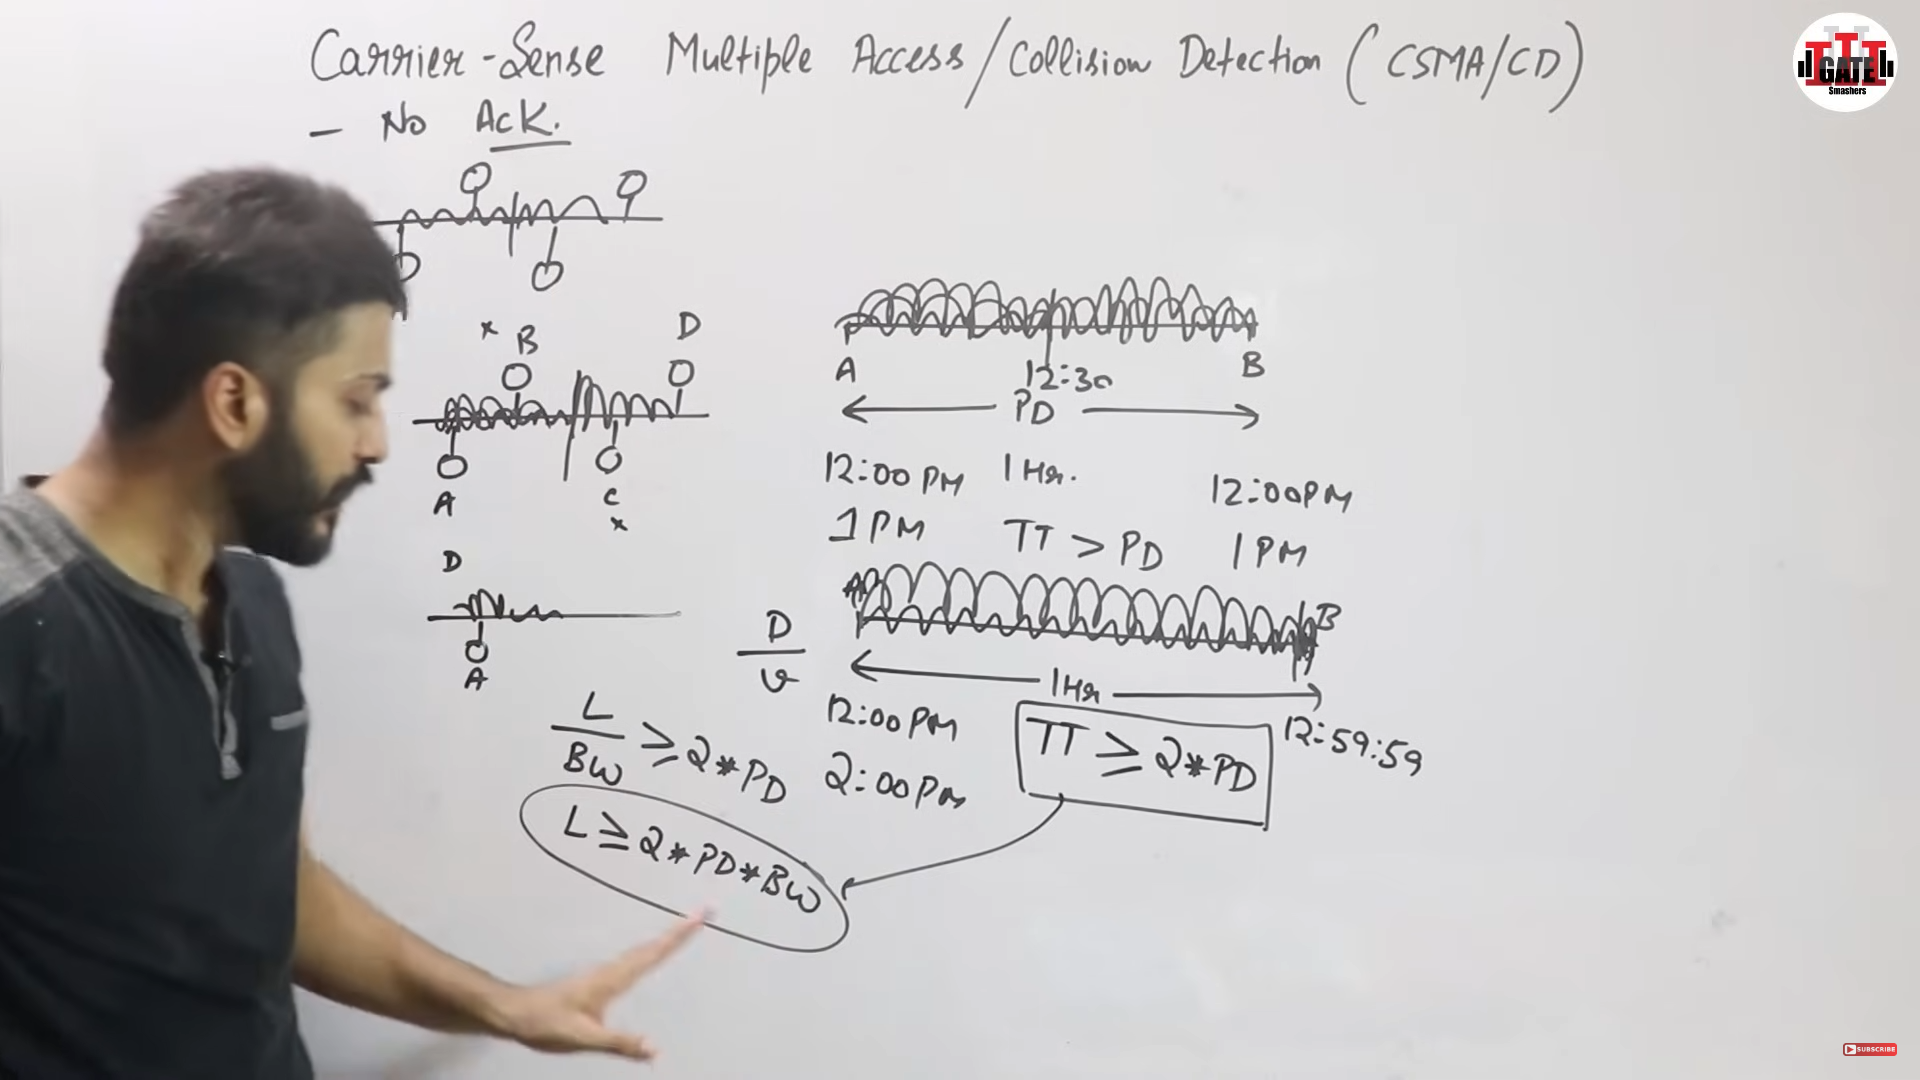 Carrier-Sense Multiple Access/Collision Detection (CSMA/CD)
- No Ack.
GATE
Smashers
* B D
A C
*
D
A
A 12:30 B
PD
12:00 PM 1 Hr. 12:00PM
1 PM TT > PD 1 PM
A B
D/v
1Hr
12:00 PM 12:59:59
2:00 PM
TT ≥ 2*PD
L/BW ≥ 2*PD
L ≥ 2*PD*BW
SUBSCRIBE